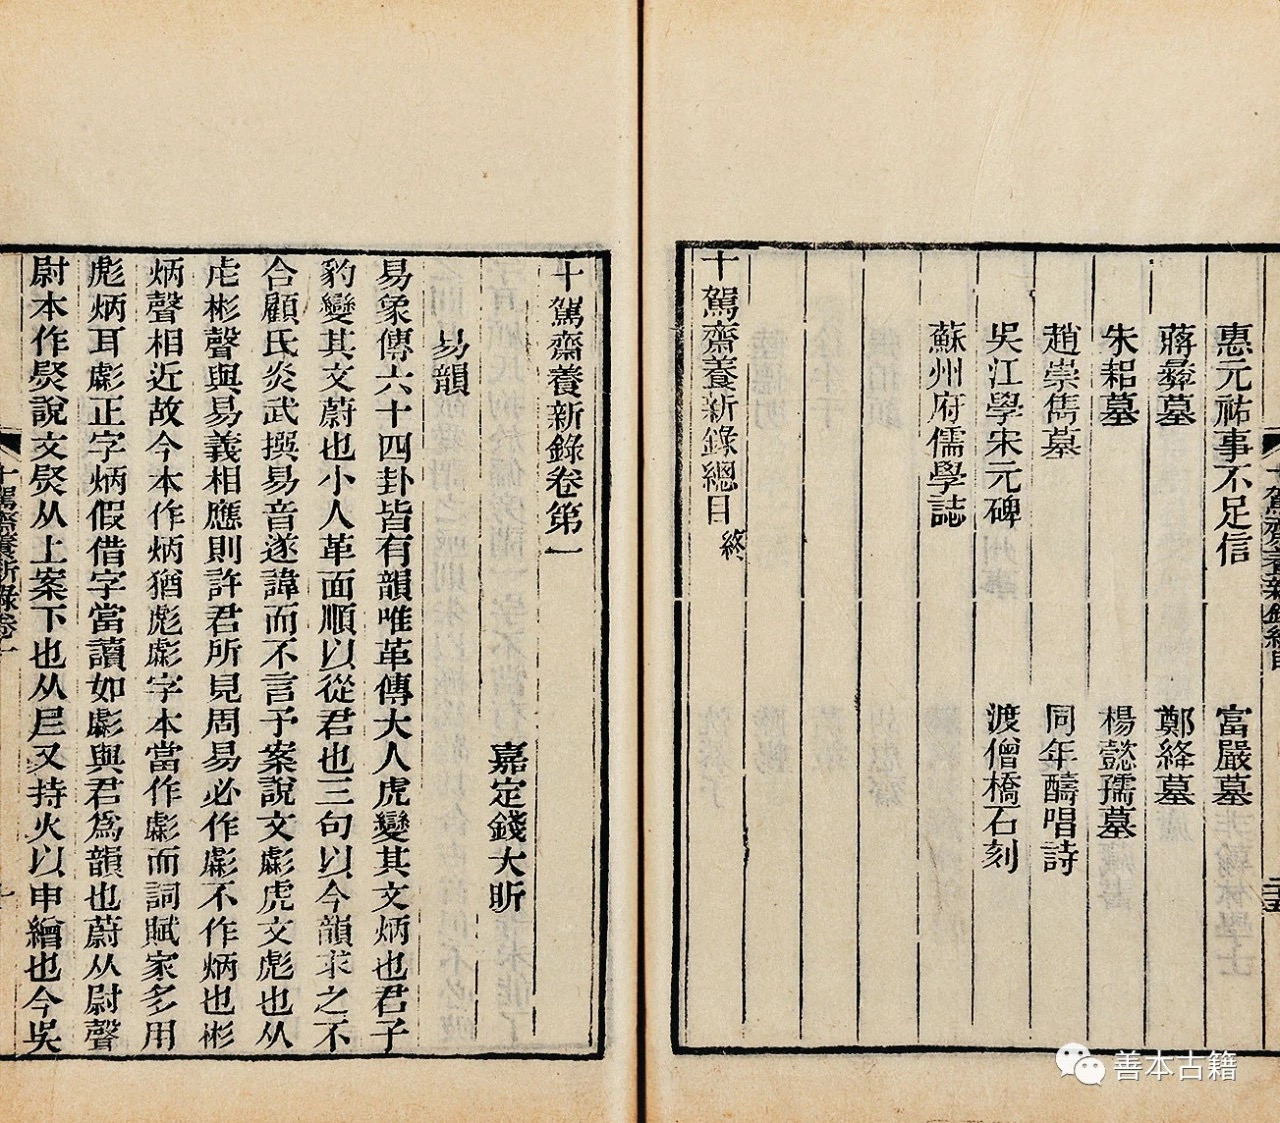 惠元祐事不足信 富嚴墓
蔣彝墓 鄭絳墓
朱耜墓 楊懿孺墓
趙崇雋墓 同年醻唱詩
吳江學宋元碑 渡僧橋石刻
蘇州府儒學誌
十駕齋養新錄總目終
十駕齋養新錄卷第一
嘉定錢大昕
易韻
易象傳六十四卦皆有韻唯革傳大人虎變其文炳也君子
豹變其文蔚也小人革面順以從君也三句以今韻求之不
合顧氏炎武撰易音遂諱而不言予案說文彪虎文彪也从
虍彬聲與易義相應則許君所見周易必作彪不作炳也彬
炳聲相近故今本作炳猶彪彪字本當作彪而詞賦家多用
彪炳耳彪正字炳假借字當讀如彪與君爲韻也蔚从尉聲
尉本作㷉說文㷉从上案下也从𡰥又持火以申繒也今吳
十駕齋養新錄卷一
善本古籍